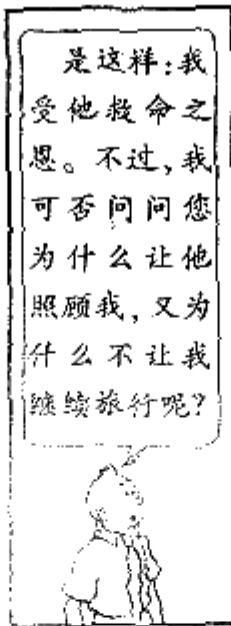 是这样：我
受他救命之
恩。不过，我
可否问问您
为什么让他
照顾我，又为
什么不让我
继续旅行呢？